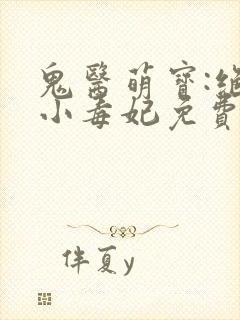 鬼醫萌寶:絕
小毒妃免費
伴夏y